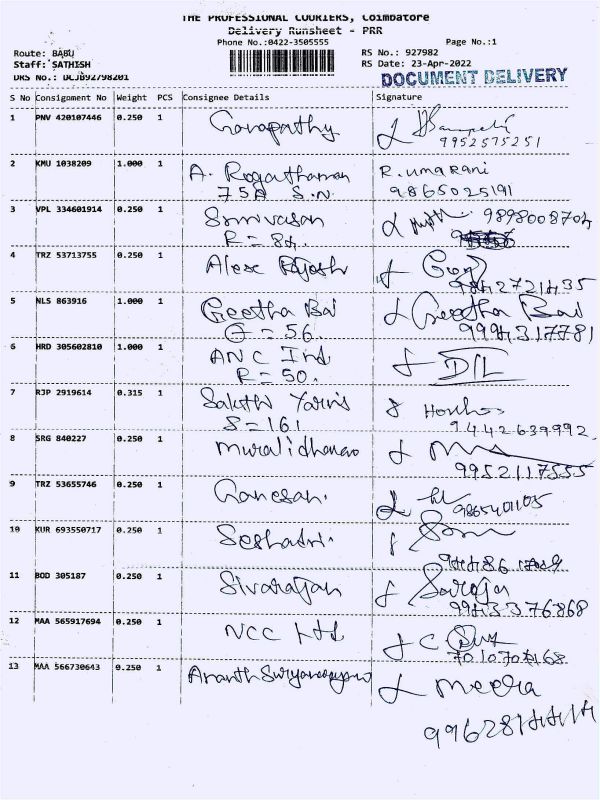 THE PROFESSIONAL COURIERS, Coimbatore
Delivery Runsheet - PRR
Phone No.:0422-3505555
Page No.:1
Route: BABU
RS No.: 927982
Staff: SATHISH
RS Date: 23-Apr-2022
DRS No.: DCJB92798201
DOCUMENT DELIVERY
S No Consignment No Weight PCS Consignee Details Signature
1 PNV 420107446 0.250 1 Ganapathy
9952575251
2 KMU 1038209 1.000 1 A. R. Umarani
75A S.N. 9865025191
3 VPL 334601914 0.250 1 Srinivasan 9898008704
R = 84.
4 TRZ 53713755 0.250 1 Alex Rajesh
9842721435
5 NLS 863916 1.000 1 Geetha Bai Geetha Bai
G = 56. 9994317781
6 HRD 305602810 1.000 1 ANC Ind
R = 50.
7 RJP 2919614 0.315 1 Sakthi Yarns
S = 161 9442639992
8 SRG 840227 0.250 1 Muralidharan
9952117555
9 TRZ 53655746 0.250 1 Ganesan.
9865401105
10 KUR 693550717 0.250 1 Seshadri.
11 BOD 305187 0.250 1 Sivarajan Saroja
9943376868
12 MAA 565917694 0.250 1 NCC Ltd
13 MAA 566730643 0.250 1 Ananth Suryanarayanan Meera
9962814414